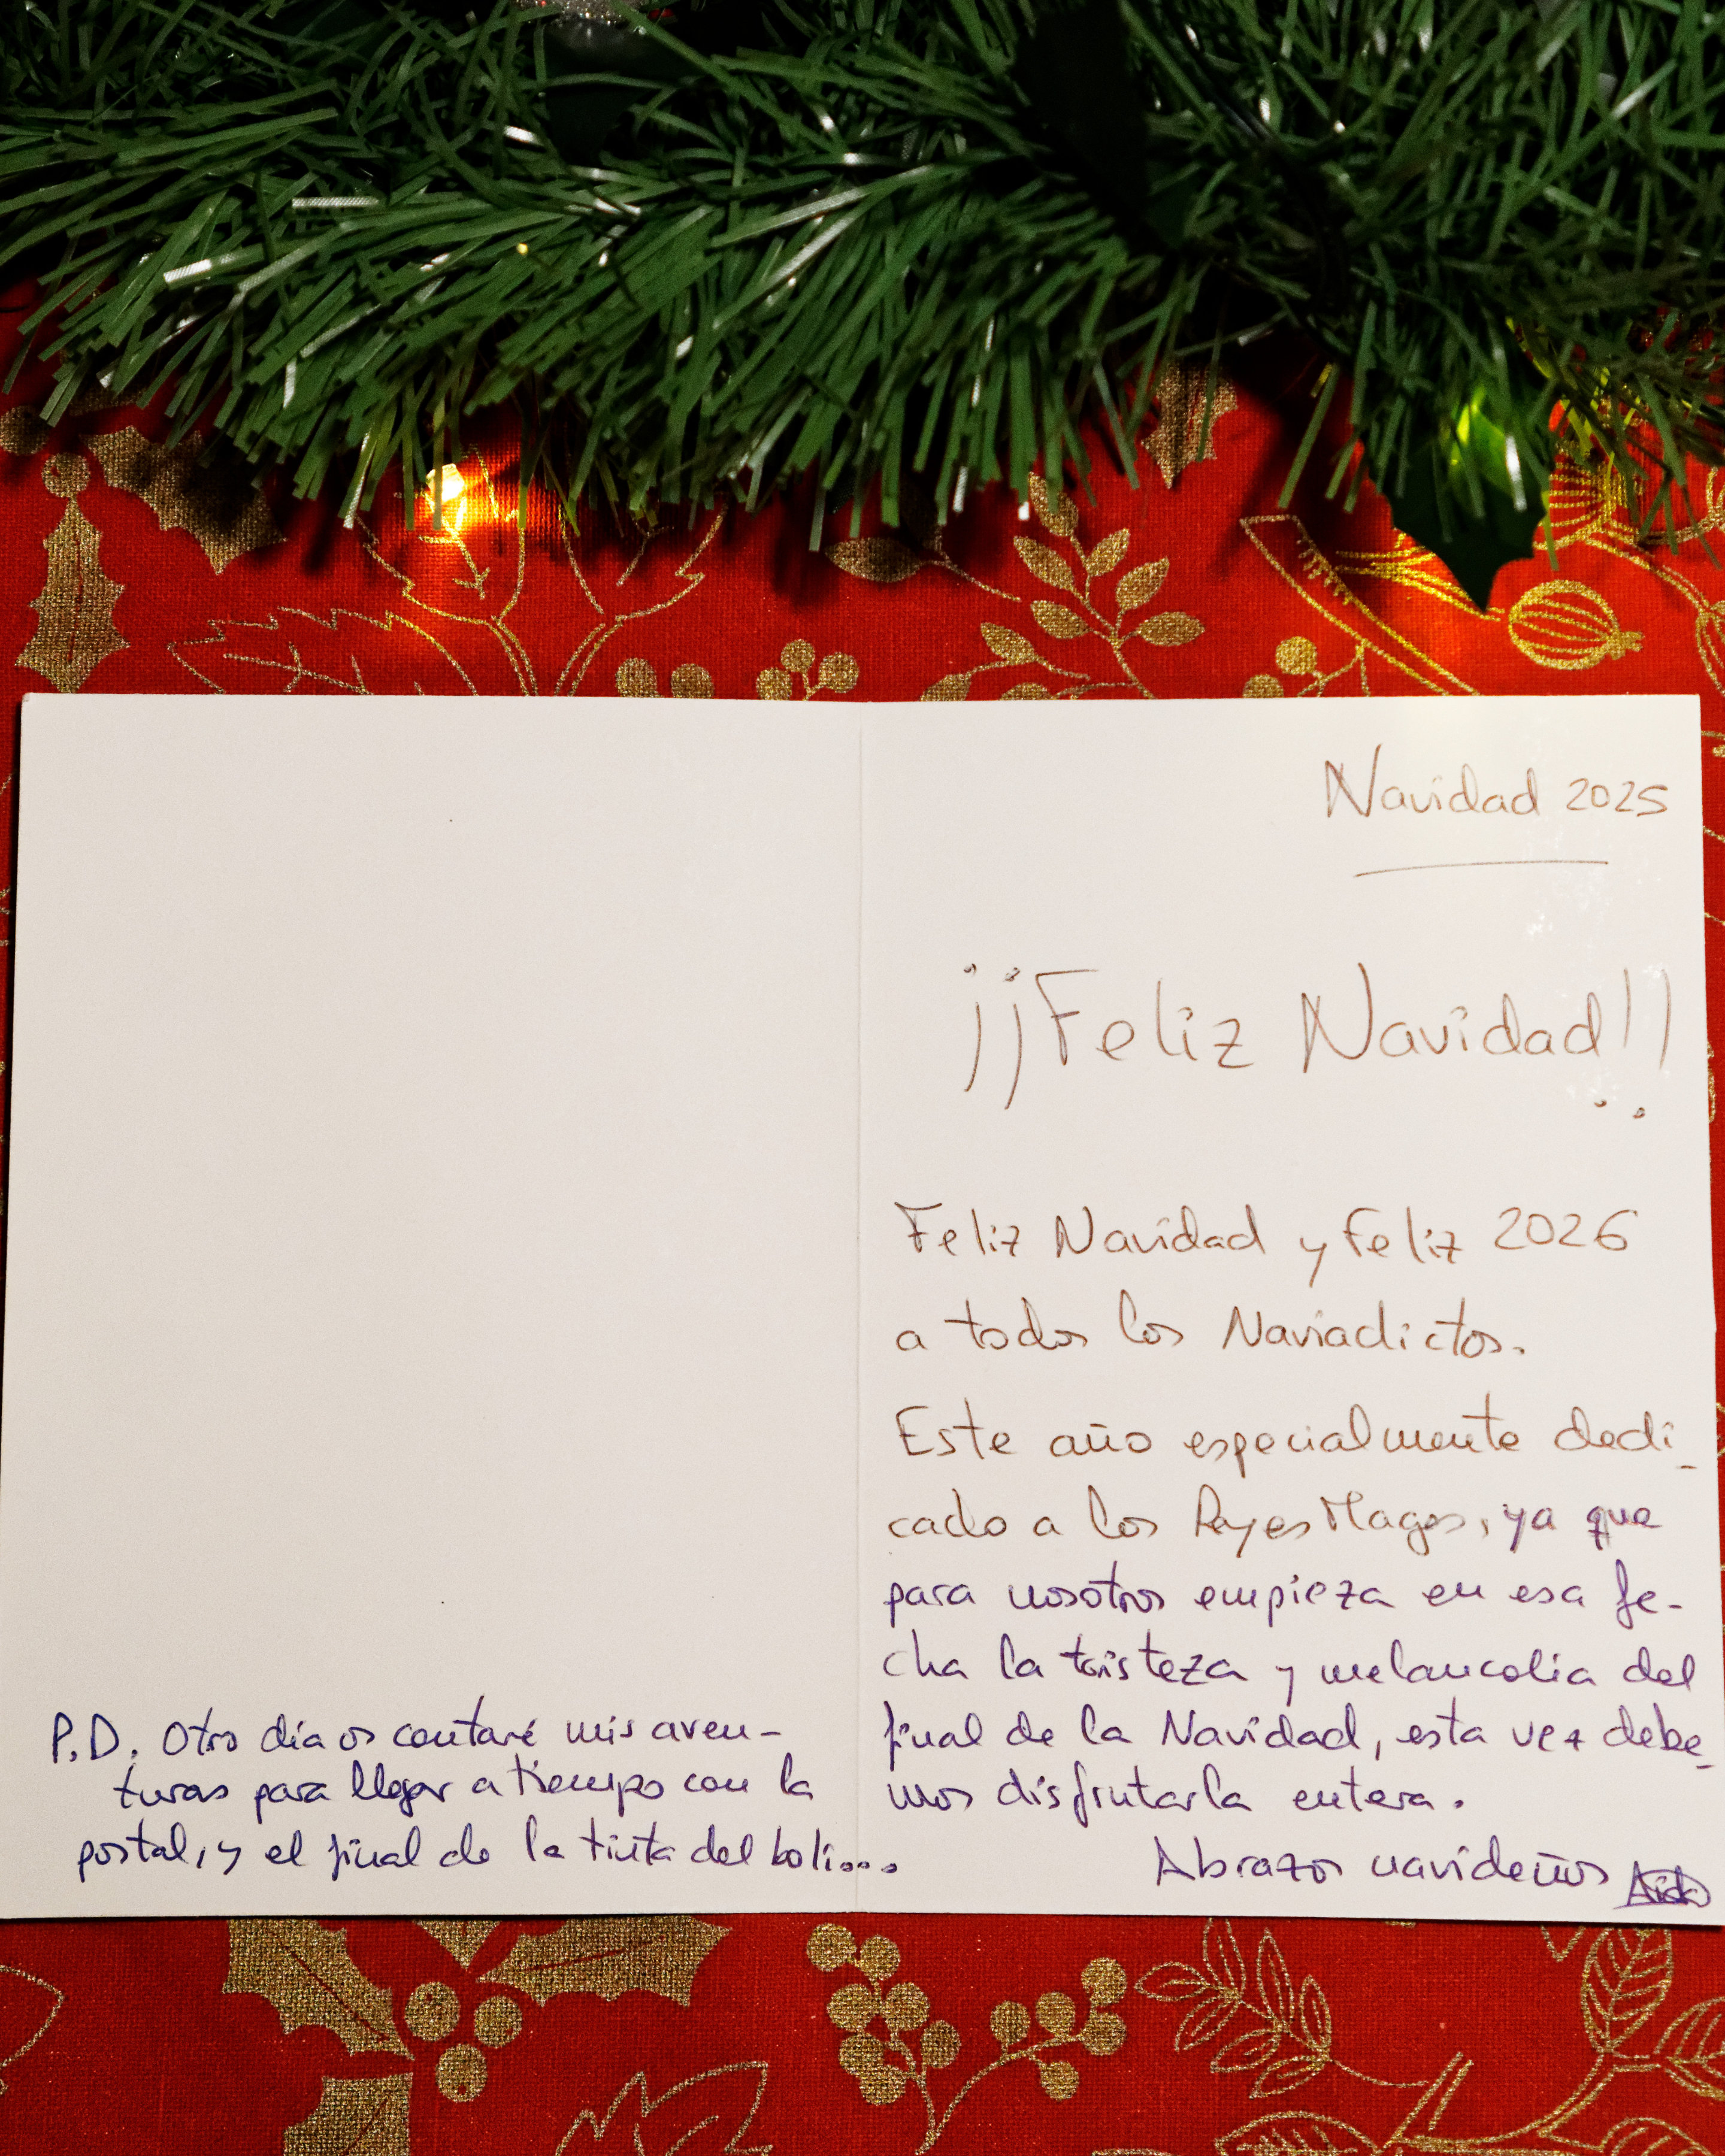 Navidad 2025
¡¡Feliz Navidad!!
Feliz Navidad y Feliz 2026
a todos los Naviadictos.
Este año especialmente dedi-
cado a los Reyes Magos, ya que
para nosotros empieza en esa fe-
cha la tristeza y melancolia del
final de la Navidad, esta vez debe-
mos disfrutarla entera.
Abrazos navideños Aida
P.D. Otro día os contaré mis aven-
turas para llegar a tiempo con la
postal, y el final de la tinta del boli...